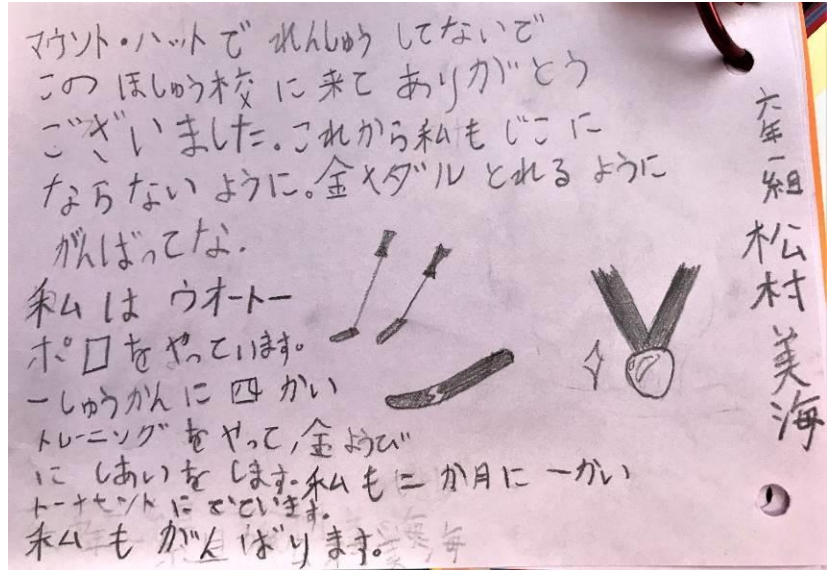 マウント・ハットで れんしゅう してないで
この ほしゅう校 に 来て ありがとう
ございました。これから私も じこ に
ならない ように。金メダル とれる ように
がんばってな.
私は ウオートー
ポロを やっています。
一しゅうかんに 四 かい
トレーニング を やって,金ようび
に しあいを します。私も 二 か月に 一かい
トーナメント に でています。
私も がんばります。
六年一組 松村 美海